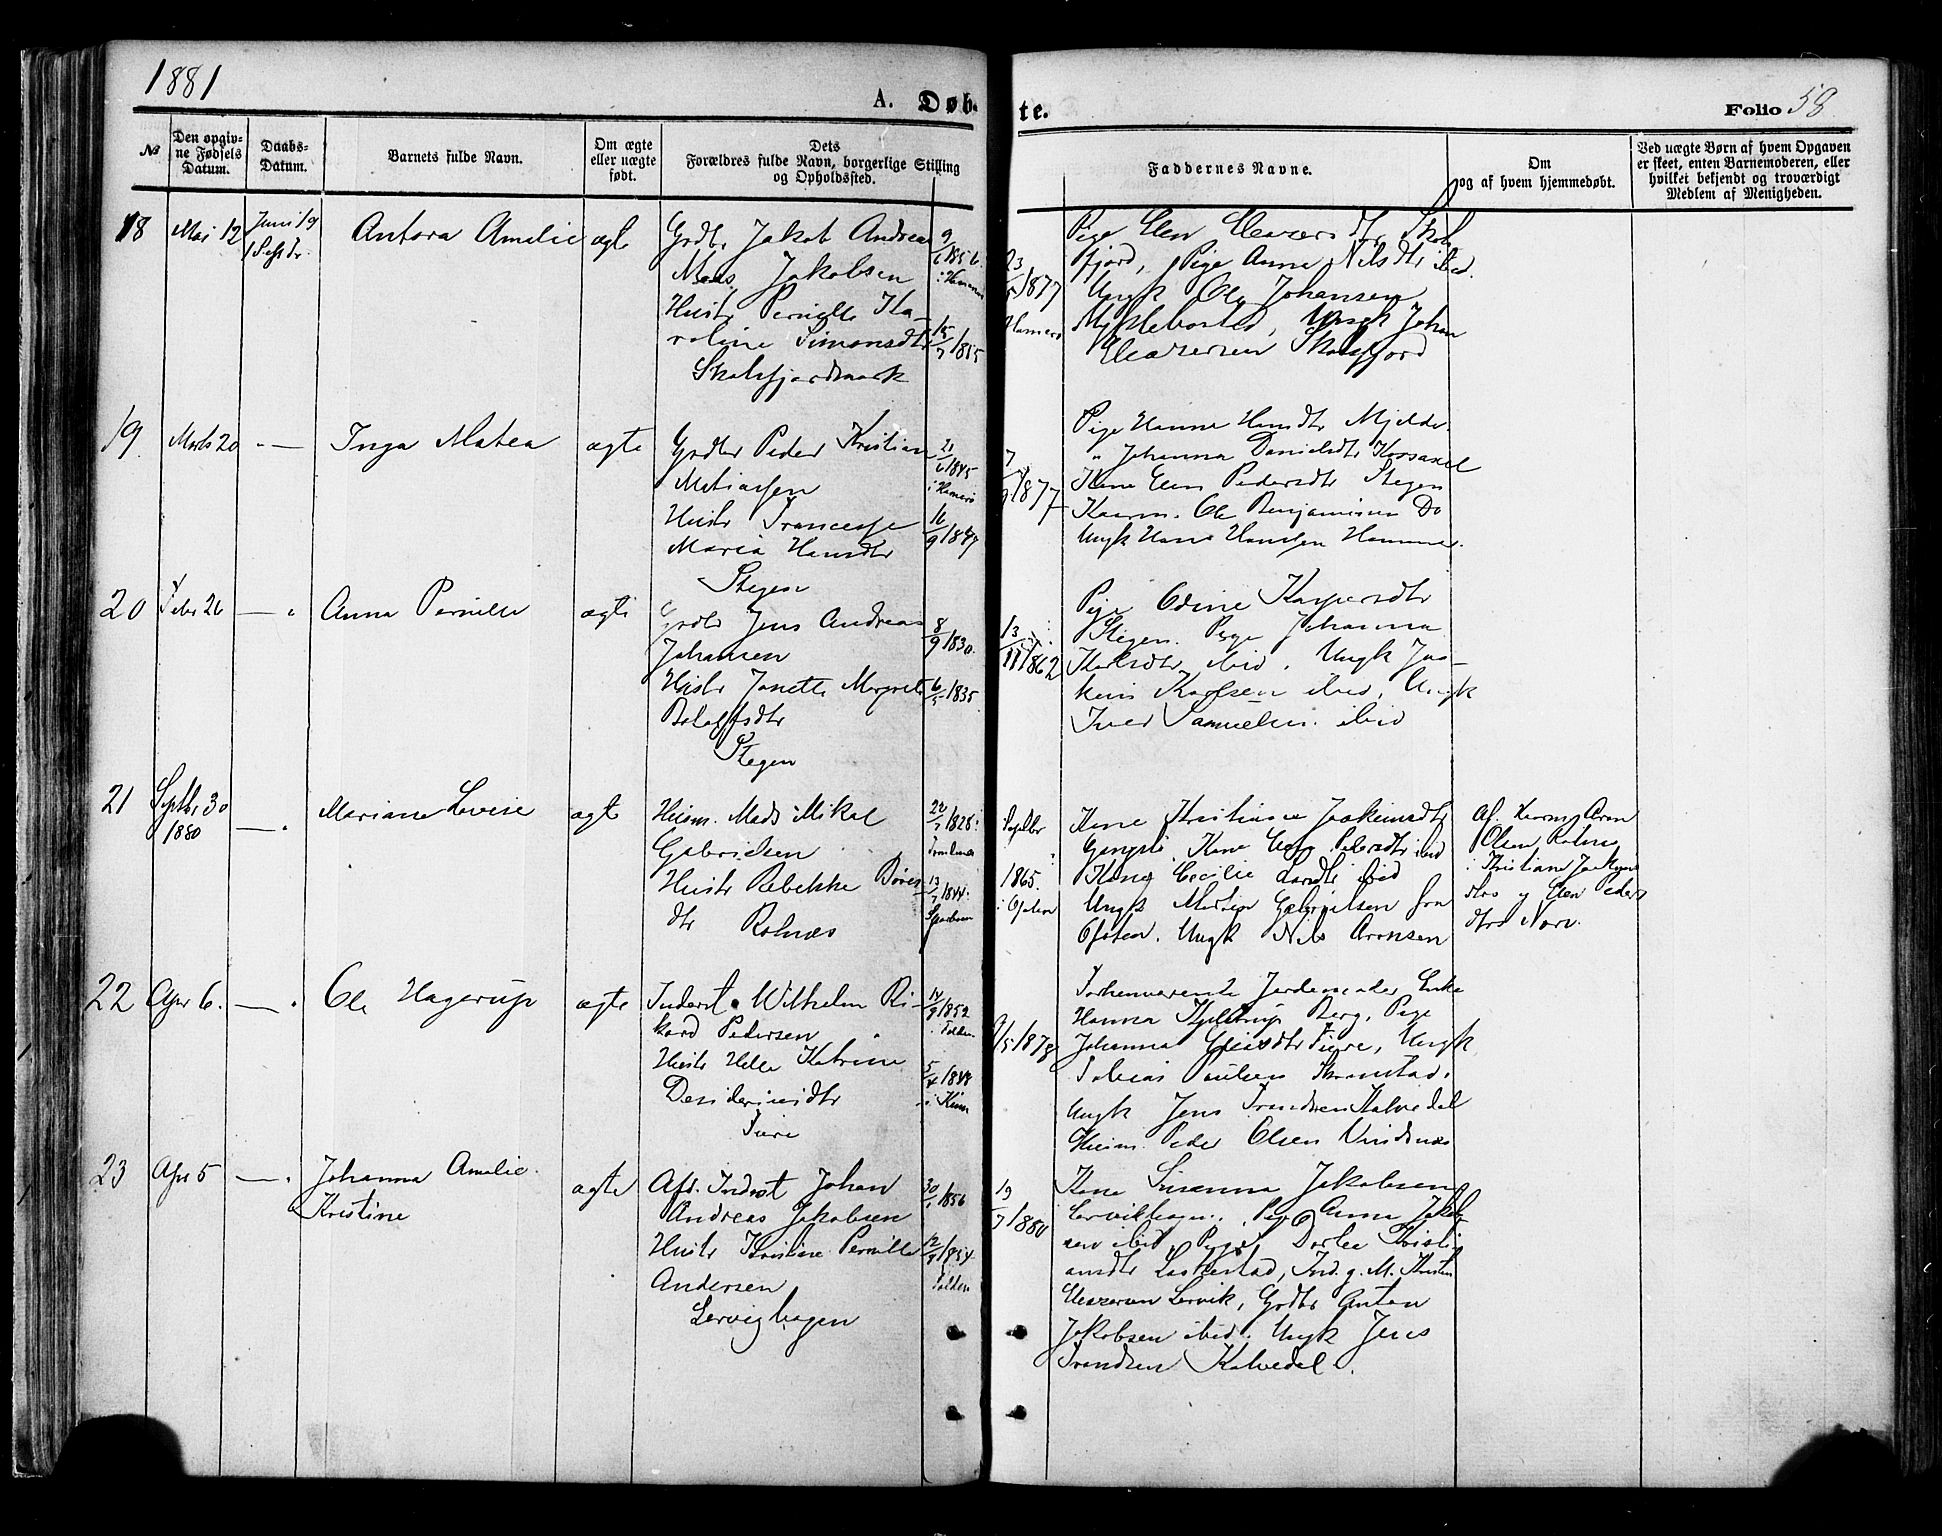 1881
A. Døb-
te.
Folio 58
№
Den opgiv-
ne Fødsels
Datum.
Daabs-
Datum.
Barnets fulde Navn.
Om ægte
eller uægte
født.
Dets
Forældres fulde Navn, borgerlige Stilling
og Opholdssted.
Faddernes Navne.
Om
og af hvem hjemmedøbt.
Ved uægte Børn af hvem Opgaven
er skeet, enten Barnemoderen, eller
hvilket bekjendt og troværdigt
Medlem af Menigheden.
18
Mai 12
Juni 19
Antora Amalie
ægte
Grdbr Jakob Andreas
Jakobsen
Hustr Pernille Ka-
roline Simonsdtr
Skotsfjordmark
9/ 1856
15/7 1855
23/5 1877
Pige Elen Eleazersdtr Skots
fjord, Pige Anna Nilsdtr ibid.
Ungk Ole Johansen
Myklebostad, Ungk Johan
Eleazersen Skotsfjord
19
Marts 20
Inga Matea
ægte
Grdbr Peder Kristian
Matiassen
Hustr Francesse
Maria Hansdtr
Stegen
21/6 1845
i Hamarø
16/9 1847
7/9 1877
Pige Hanna Hansdtr Mjelde
" Johanna Danielsdtr
Kone Elen Pedersdtr Stegen
Kaarm. Ole Benjaminsen Do
Ungk Hans Hansen Hammer.
20
Febr 26
Anna Pernille
ægte
Grdbr Jens Andreas
Johansen
Hustr Janette Margrete
Stegen
8/9 1830
6/5 1835
13/11 1862
Pige Edine Kaspersdtr
Stegen. Pige Johanna
Karlsdtr ibid. Ungk Joa-
kim Karlsen ibid, Ungk
Iver Samuelsen ibid
21
Septbr 30
1880
Mariane Lovise
ægte
Husm. Mads Mikal
Gabrielsen
Hustr Rebekka
dtr Rotnæs
22/7 1828
13/7 1844
Septbr
1865.
i Ofoten
Kone Kristiane Joakimsdtr
Kone Pedersdtr ibid
Kone Cecilie Larsdtr ibid
Ungk Martin Gabrielsen fra
Ofoten. Ungk Nils Aronsen
Af Aron
Olsen Rotnæs
Kristiane
og Elen Peders
dtr
22
Apr 6.
Ole Hagerup
ægte
Inderst Wilhelm Ri-
kard Pedersen
Hustr Helle Katrine
Desideriusdtr
14/9 1852
i Folden
5/4 1848
/5 1878
Forhenværende Jordemoder Enke
Hanna Berg, Pige
Johanna Ungk
Tobias Paulsen
Ungk Jens Trondsen Kalvedal
Husm. Peder Olsen Vindsnæs
23
Apr 5
Johanna Amalie
Kristine
ægte
Afd. Inderst Johan
Andreas Jakobsen
Hustr Kristine Pernille
Andersen
Lervighagen
30/ 1856
12/ 1854
Folden
19/7 1880
Kone Susanna Jakobsen
Lervikhagen, Pige Anna Jakob
sen ibid, Pige Dortea Kristi
ansdtr Laskestad, Ind. g. M. Kristen
Eleazersen Lervik, Grdbr Anton
Jakobsen ibid. Ungk Jens
Trondsen Kalvedal.